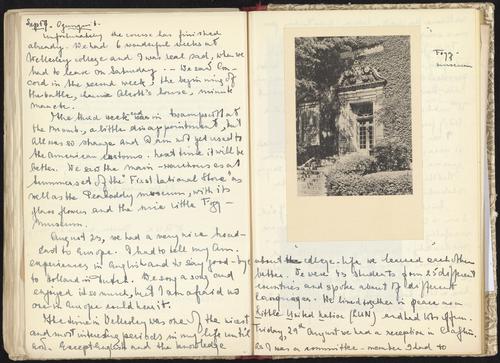 Sept 4. Ogunquit.
Unfortunately the course has finished
already. We had 6 wonderful weeks at
Wellesley college and I was real sad, when we
had to leave on Saturday. - We saw Con-
cord in the second week, the beginning of
the battle, Louisa Alcott's house, minute
man etc.
The third week was in Swampscott at
the
a little disappointment, but
all was so strange and I am not yet used to
the American customs. Next time it will be
better. We saw the main - warehouse at
Summerset of the "First National Store" as
well as the Peabody museum, with its
glass flowers and the nice little Fogg -
museum.
August 23, we had a very nice
to Europe. I had to tell my Am.
experiences in English and to say good-bye
to Holland in Dutch. We sang a song and
enjoyed it so much, but I am afraid no
one in Europe could hear it.
The time in Wellesley was one of the nicest
and most interesting periods in my life until
now. Except English and the knowledge
Fogg
museum
about the college-life we learned each other
better. We were 43 students from 25 different
countries and spoke about 17 different
languages. We lived together in peace as a
little United Nation (UN) and had lots of fun.
Friday, 29th August we had a reception in
As I was a committee-member I had to